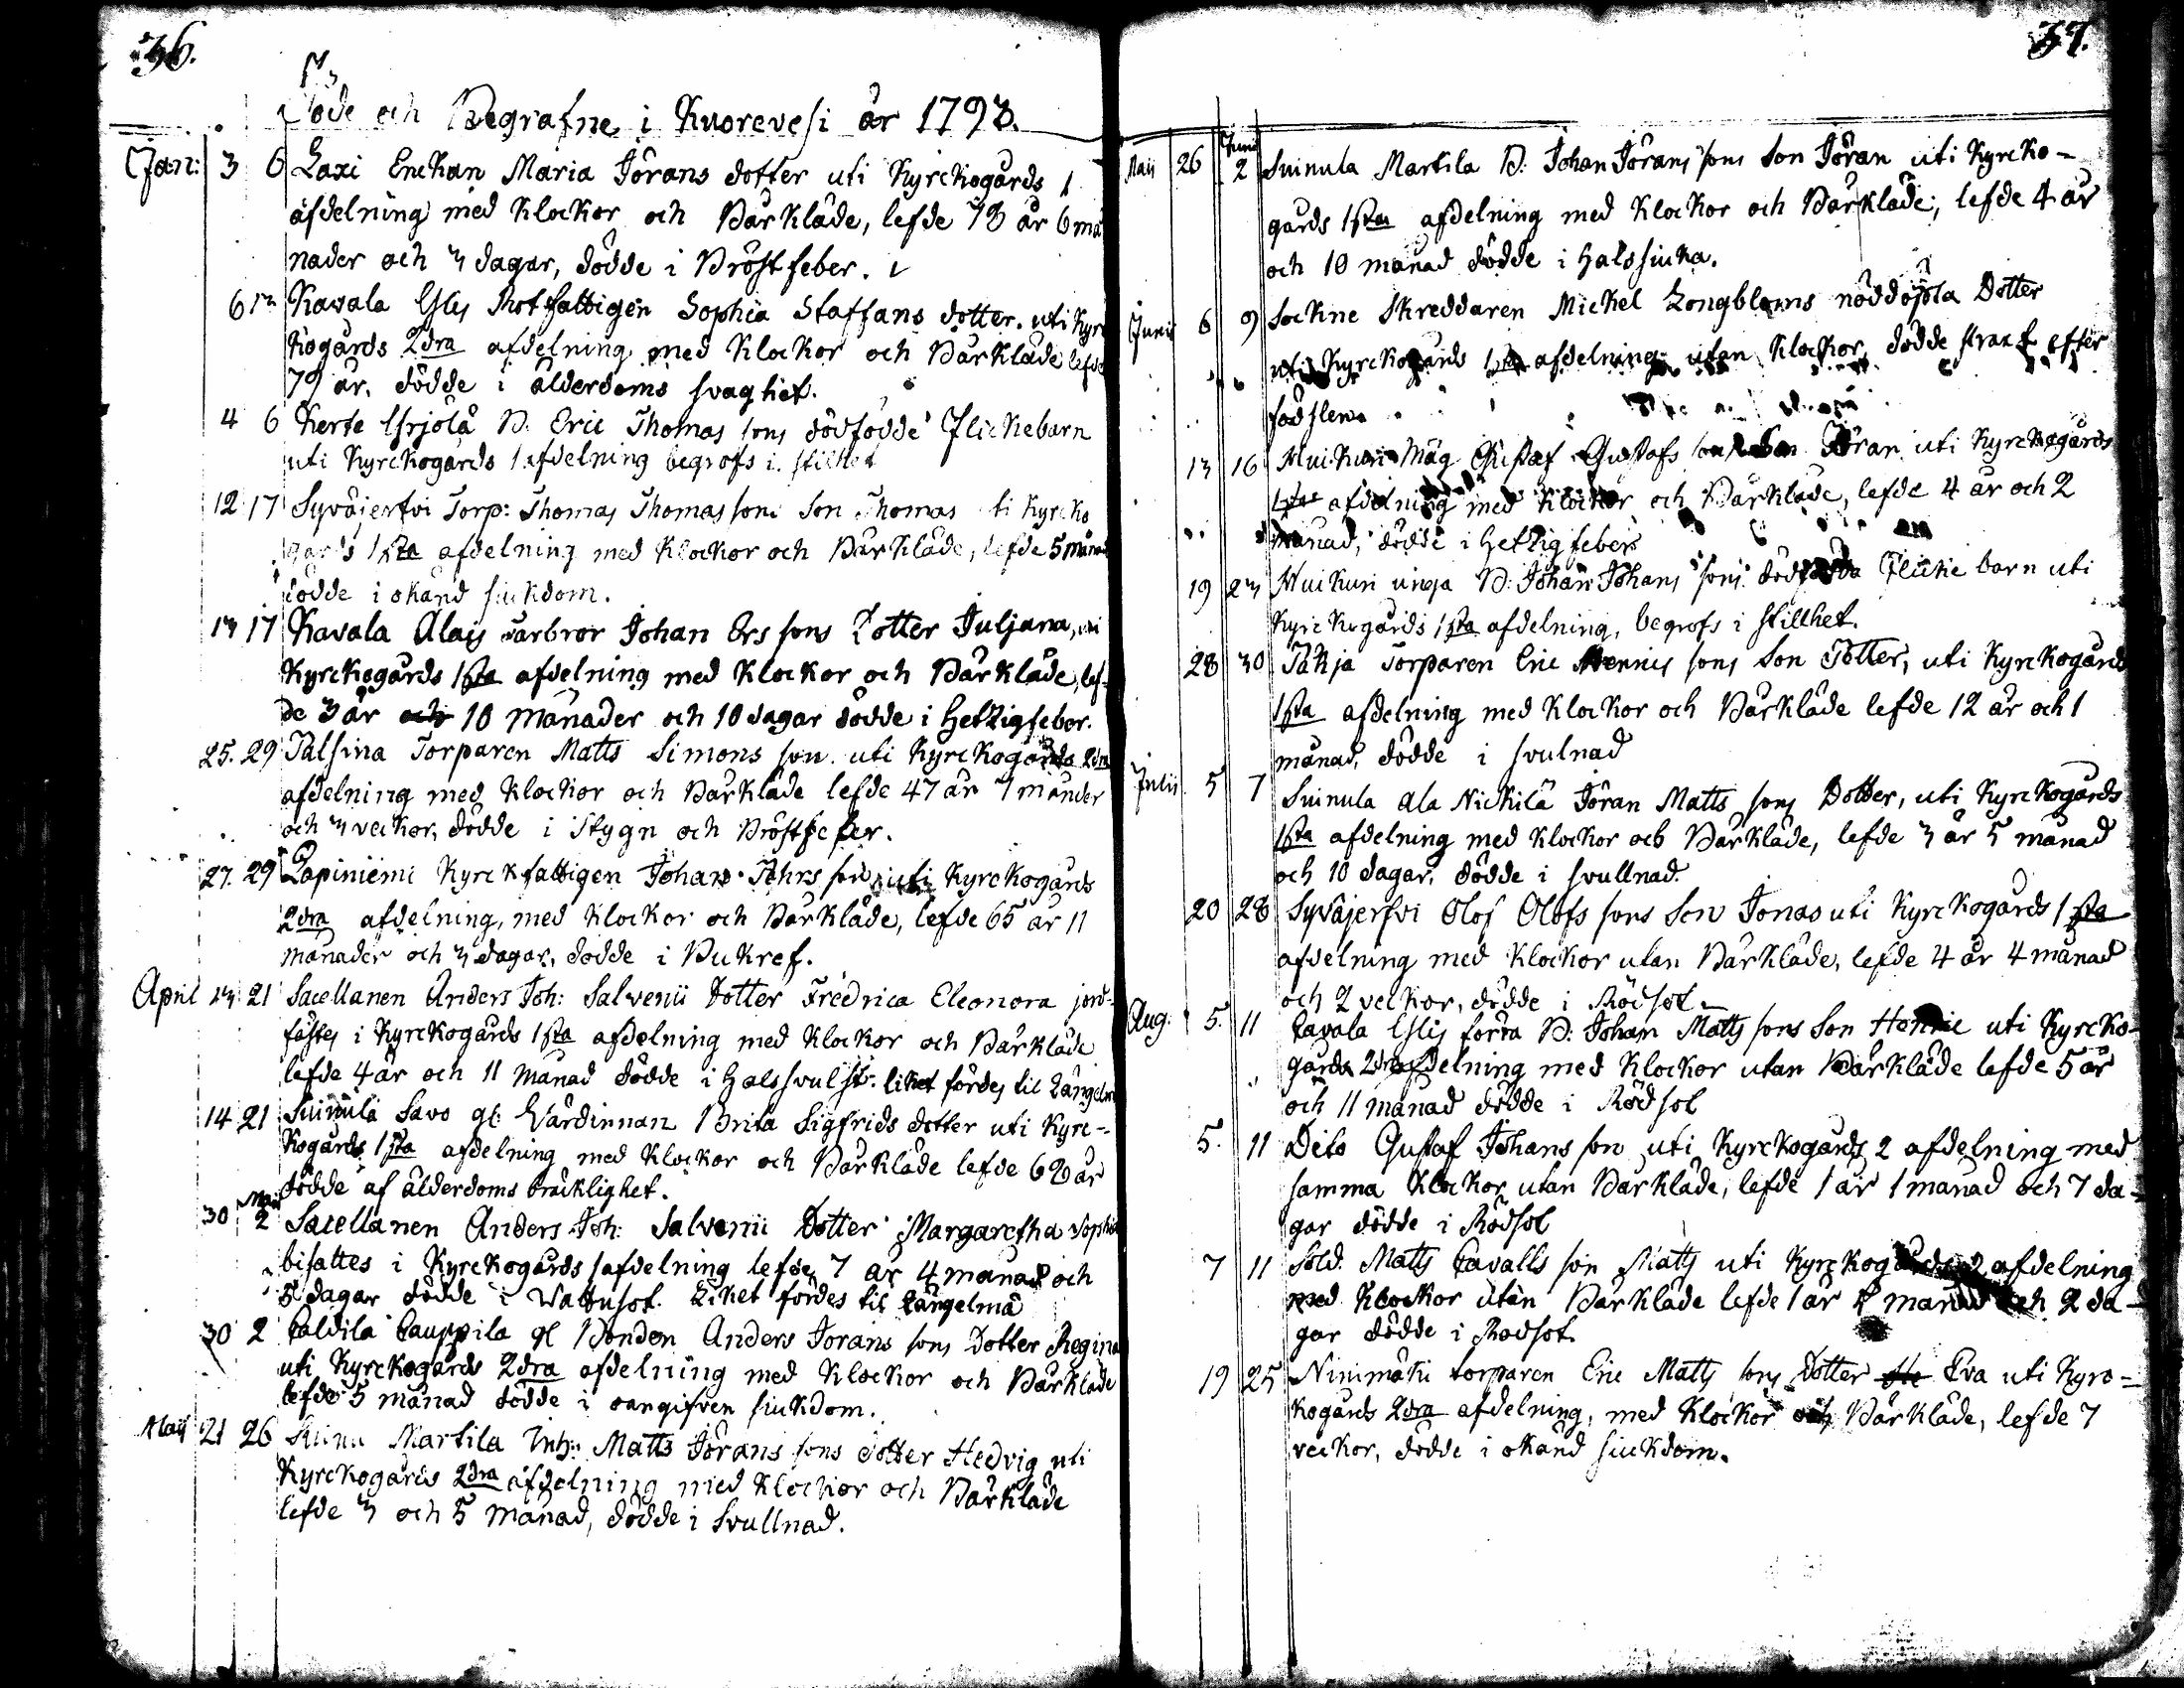 36.
Döde och Begrafne i Kuorevesi år 1793.
Jan: 3 6 Laxi Enckan Maria Jörans dotter uti Kyrckogårds 1
afdelning med Klockor och Bårkläde, lefde 73 år 6 må
nader och 3 dagar, dödde i Bröstfeber.
6 13 Kavala Eslys Rotfattigen Sophia Staffans dotter. uti Kyrc
kogårds 2dra afdelning med Klockor och Bårkläde lefde
79 år. dödde i ålderdoms svaghet.
4 6 Kerte Yrjölä B. Eric Thomas sons dödfödde Flickebarn
uti Kyrckogårds 1 afdelning begrofs i stilhet
12 17 Syväjerfvi Torp: Thomas Thomas sons Son Thomas uti Kyrcko
gårds 1sta afdelning med Klockor och Bårkläde, lefde 5 månad
dödde i okänd siuckdom.
13 17 Kavala Alais Farbror Johan Ers sons Dotter Juljana, uti
Kyrckogårds 1sta afdelning med Klockor och Bårkläde, lef-
de 3 år och 10 Månader och 10 dagar dödde i Hetzigfeber.
25. 29 Talsina Torparen Matts Simons son. uti Kyrckogårds 2dra
afdelning med Klockor och Bårkläde lefde 47 år 7 månder
och 3 veckor, dödde i Stygn och Bröstfeber.
27. 29 Lapiniemi Kyrckfattigen Johan Johrs son uti Kyrckogårds
2dra afdelning, med Klockor och Bårkläde, lefde 65 år 11
månader och 3 dagar, dödde i Bukref.
April 13 21 Sacellanen Anders Joh: Salvenii Dotter Fredrica Eleonora jord-
fästes i Kyrckogårds 1sta afdelning med Klockor och Bårkläde
lefde 4 år och 11 Månad dödde i Halssvulst. liket fördes til Längelmä
14 21 Suinula Savo gl: Värdinnan Brita Sigfrids dotter uti Kyrc-
kogårds 1sta afdelning med Klockor och Bårkläde lefde 62 år
dödde af ålderdoms bräcklighet.
30 Maii 2 Sacellanen Anders Joh: Salvenii Dotter Margaretha Sophia
bisattes i Kyrckogårds 1 afdelning lefde 7 år 4 månad och
5 dagar dödde i Wattusot. Liket fördes til Längelmä
30 2 Paldila Pauppila gl Bonden Anders Jörans sons Dotter Regina
uti Kyrckogårds 2dra afdelning med Klockor och Bårkläde
lefde 5 månad dödde i oangifven siuckdom.
Maij 21 26 Suinu Martila Inh: Matts Jörans sons dotter Hedvig uti
Kyrckogårds 2dra afdelning med Klockor och Bårkläde
lefde 3 och 5 Månad, dödde i Svullnad.
37.
Maij 26 Junii 2 Suinula Martila B: Johan Jörans sons Son Jöran uti Kyrcko-
gårds 1sta afdelning med Klockor och Bårkläde; lefde 4 år
och 10 månad dödde i Halssiuka.
Junii 6 9 Sockne Skreddaren Mickel Longbloms nöddöpta Dotter
uti Kyrckogårds 1sta afdelning utan Klockor, dödde strax efter
födslen.
13 16 Muikuri Måg Gustaf Gustafs sons Son Jöran uti Kyrckogårds
1sta afdelning med Klockor och Bårkläde, lefde 4 år och 2
månad, dödde i Hetzigfeber
19 23 Muikuri unga B: Johan Johans sons dödfödda Flicke barn uti
Kyrckogårds 1sta afdelning, begrofs i stillhet.
28 30 Täkjä Torparen Eric Hennies sons Son Petter, uti Kyrckogårds
1sta afdelning med Klockor och Bårkläde lefde 12 år och 1
månad, dödde i svulnad
Julii 5 7 Suinula ala Nickilä Jöran Matts sons Dotter, uti Kyrckogårds
1sta afdelning med Klockor och Bårkläde, lefde 3 år 5 månad
och 10 dagar, dödde i svullnad.
20 28 Syväjerfvi Olof Olofs sons Son Jonas uti Kyrckogårds 1sta
afdelning med Klockor utan Bårkläde, lefde 4 år 4 månad
och 2 veckor, dödde i Rödsot
Aug: 5. 11 Cavala Eslis förra B: Johan Matts sons Son Henric uti Kyrcko-
gårds 2dra afdelning med Klockor utan Bårkläde lefde 5 år
och 11 månad dödde i Rödsot
5. 11 Dito Gustaf Johans son uti Kyrckogårds 2 afdelning med
samma Klockor utan Bårkläde, lefde 1 år 1 månad och 7 da-
gar dödde i Rödsot
7 11 Sold. Matts Cavalls son Matts uti Kyrckogårds 2 afdelning
med Klockor utan Bårkläde lefde 1 år månad och 2 da-
gar dödde i Rodsot.
19 25 Ninimäki torparen Eric Matts sons Dotter Eva uti Kyrc-
kogårds 2dra afdelning, med Klockor och Bårkläde, lefde 7
veckor, dödde i okänd siuckdom.